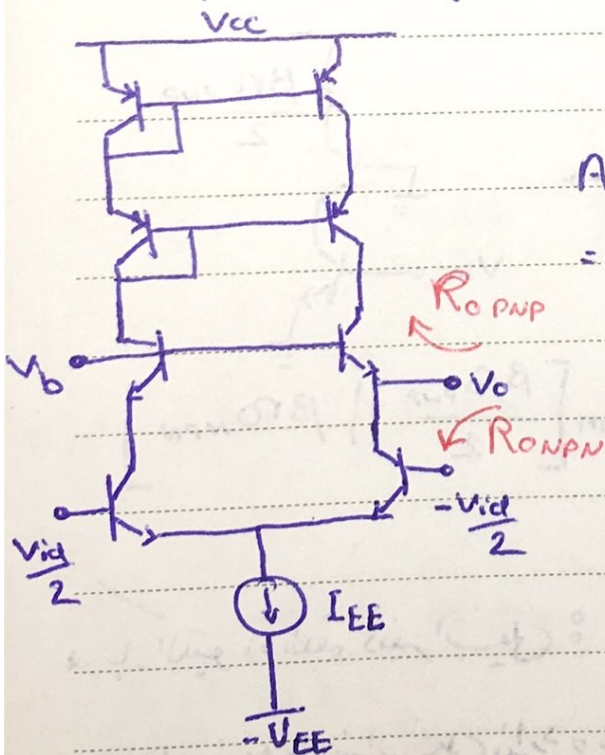 Vcc
A
=
Ro PNP
Vb
Vo
RONPN
Vid/2
-Vid/2
IEE
-VEE